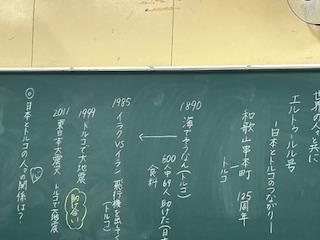 世界の人々と共に
エルトゥールル号
－日本とトルコのつながり－
和歌山串本町 125周年
トルコ
1890 海でそうなん(トルコ)
600人中69人 助けた(日本
食料
1985 イラクVSイラン 飛行機を出す
(トルコ)
1999 トルコで大地震
助け合い
2011 東日本大震災 トルコで地震
◎日本とトルコの人々の関係は?